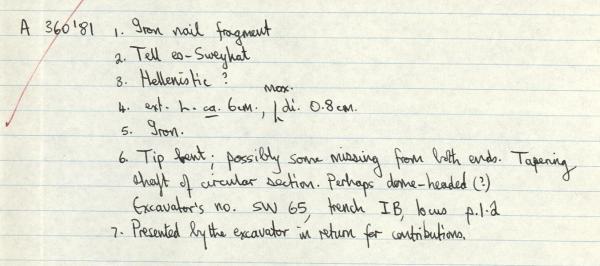 A 360'81 1. Iron nail fragment
2. Tell es-Sweyhat
3. Hellenistic ?
4. ext. L. ca. 6cm., max. di. 0.8cm.
5. Iron.
6. Tip bent; possibly some missing from both ends. Tapering
shaft of circular section. Perhaps dome-headed (?)
Excavator's no. SW 65, trench IB, locus p.1.2
7. Presented by the excavator in return for contributions.